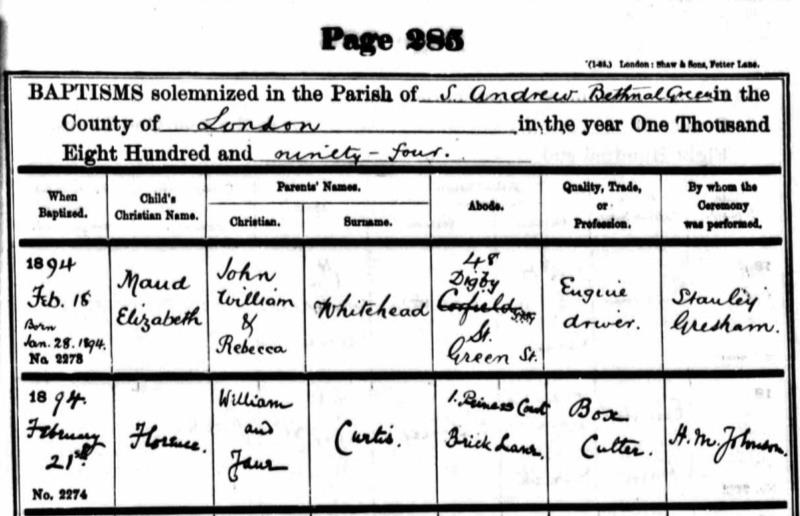 Page 285
(1-93.) London: Shaw & Sons, Fetter Lane.
BAPTISMS solemnized in the Parish of S. Andrew Bethnal Green in the
County of London in the year One Thousand
Eight Hundred and ninety-four.
When Baptized.
Child's Christian Name.
Parents' Names.
Christian.
Surname.
Abode.
Quality, Trade, or Profession.
By whom the Ceremony was performed.
1894
Feb. 18
Born
Jan. 28. 1894.
No. 2273
Maud
Elizabeth
John
William
&
Rebecca
Whitehead
48
Digby
St.
Green St.
Engine
driver.
Stanley
Gresham.
1894.
February
21st.
No. 2274
Florence.
William
and
Jane
Curtis.
1. Princess Court
Brick Lane.
Box
Cutter.
H. M. Johnson.